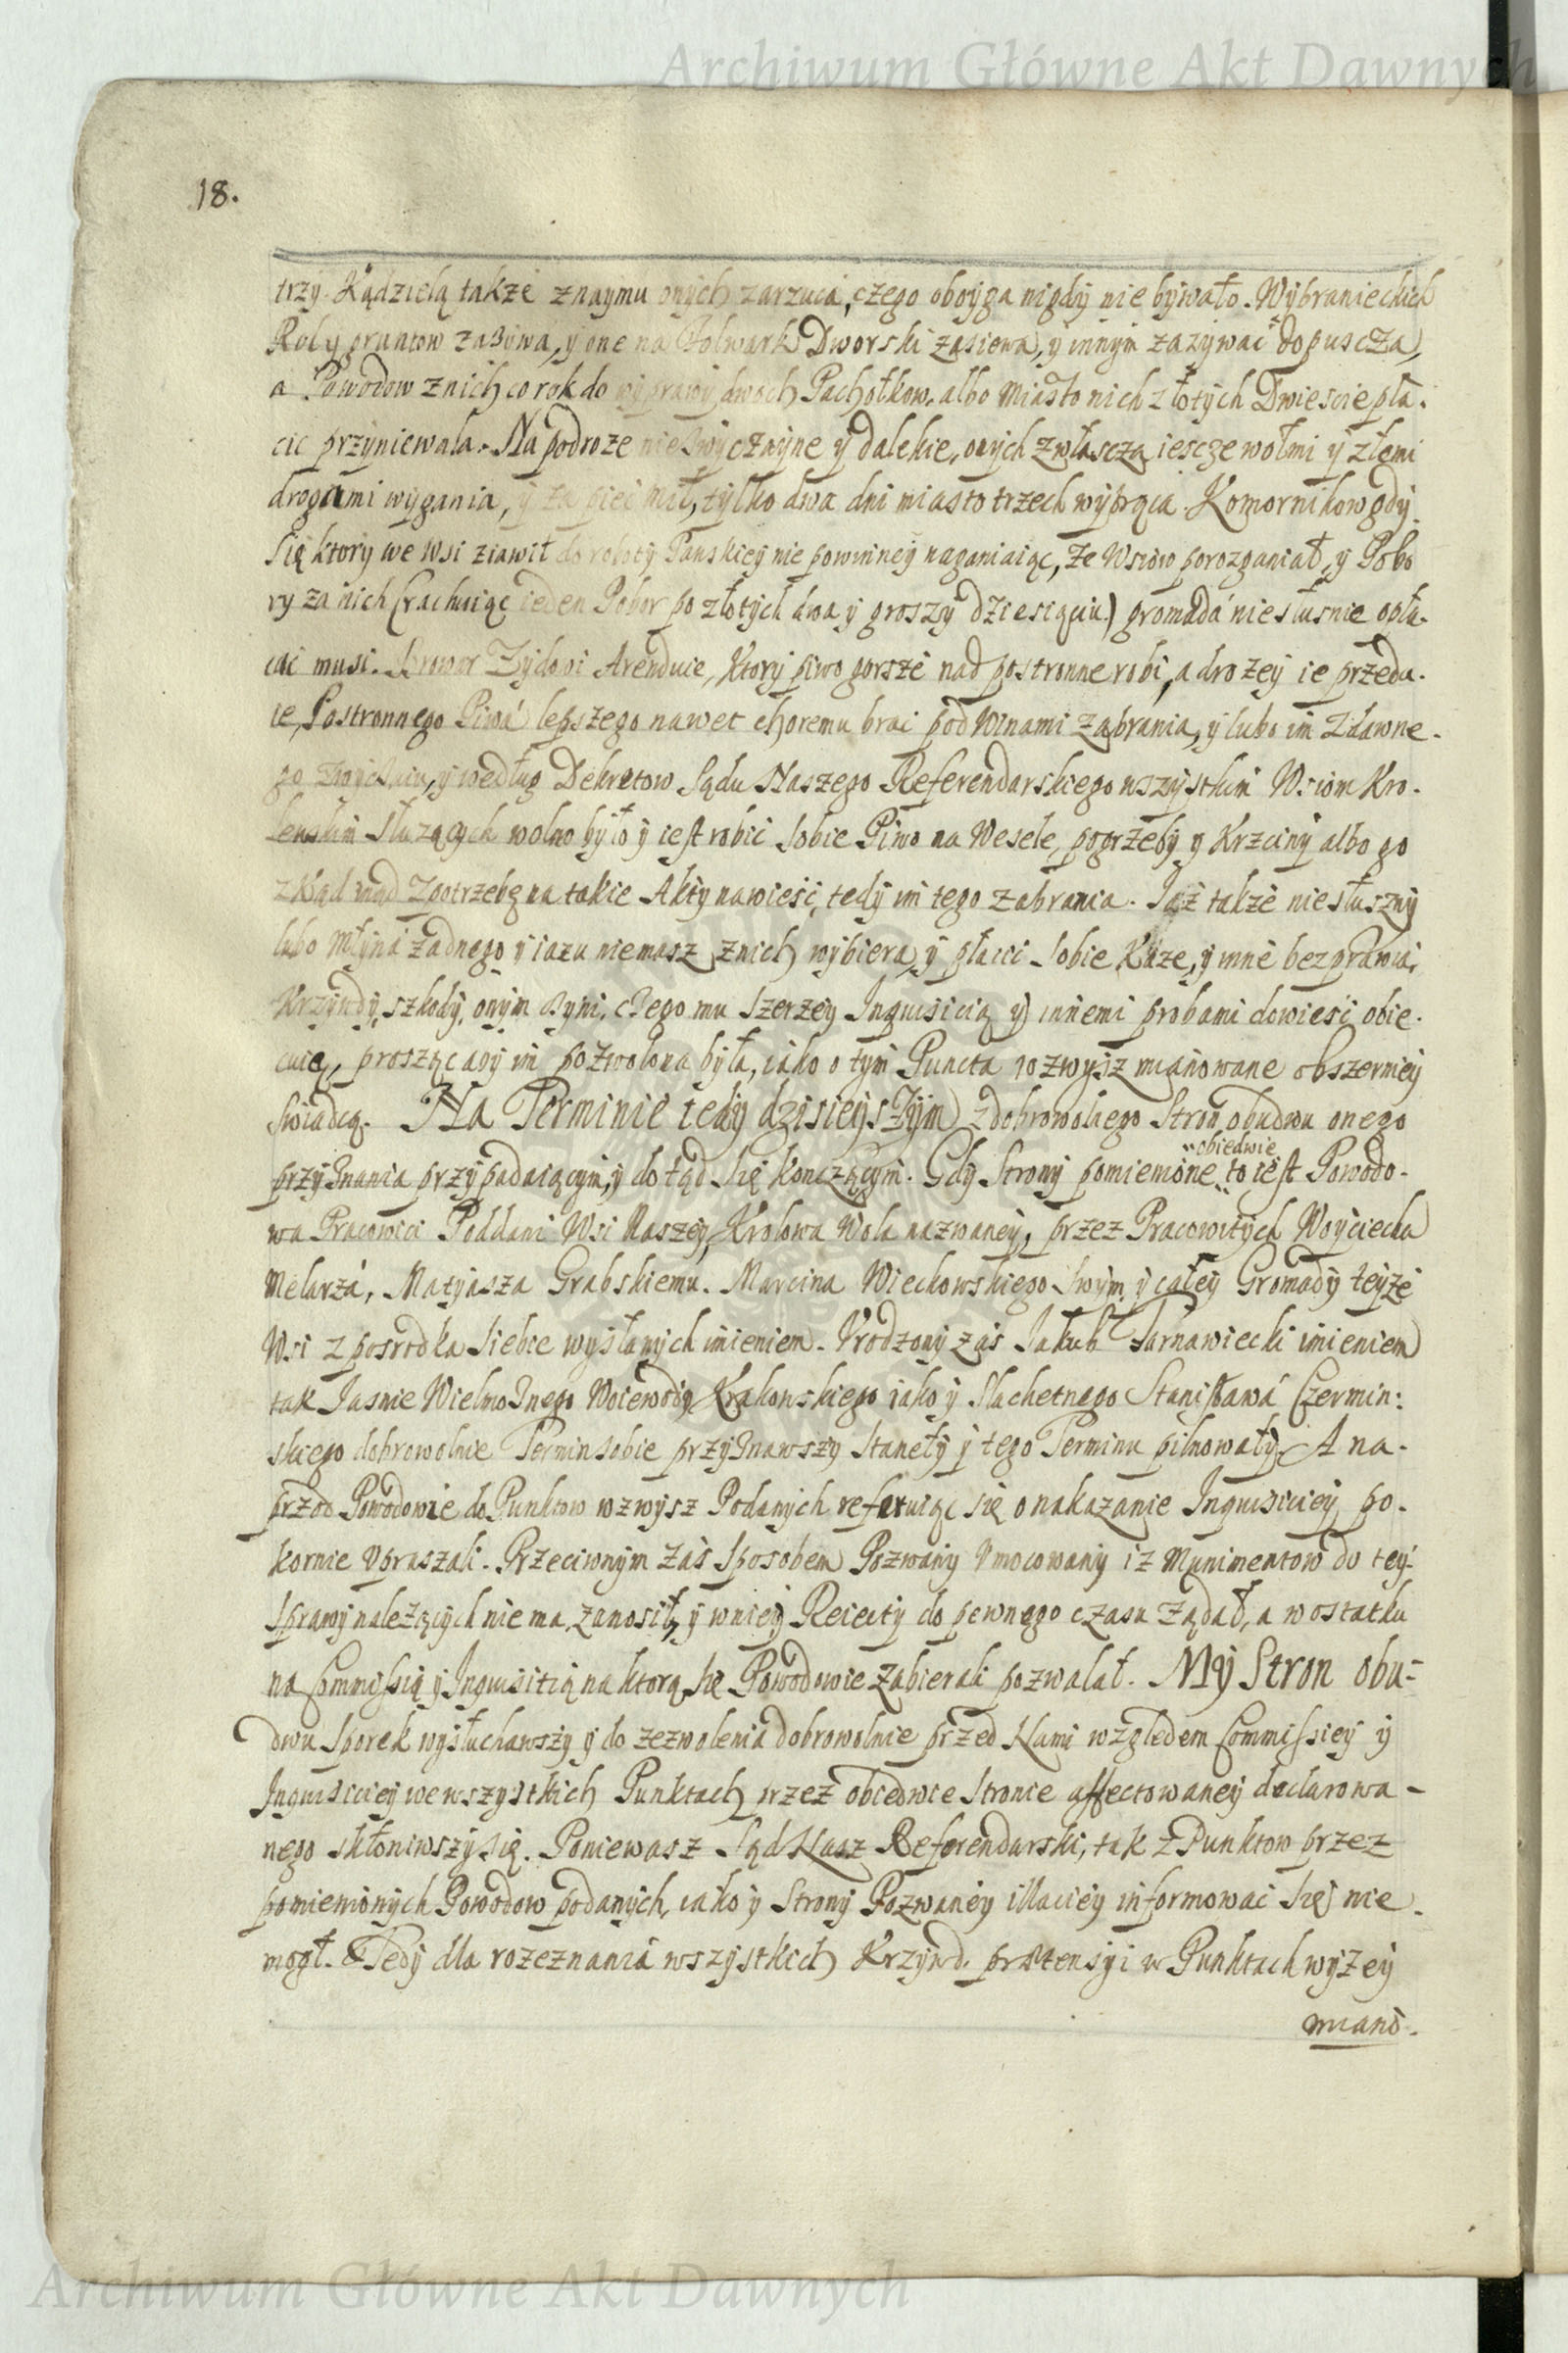 Archiwum Główne Akt Dawnych
18.
trzy. Kądzielą także z naymu onych zarzuca, czego oboyga nigdy nie bywało. Wybranieckich
Roly gruntow zażywa, y one na Folwark Dworski zasiewa, y innym zazywać dopuscza,
a Powodow z nich co rok do wyprawy dwoch Pachołkow, albo miasto nich złotych Dwiescie pła-
cic przyniewala. Na podroze niezwyczayne y dalekie, onych zwłascza iescze wołmi y złemi
drogami wygania, y za pięć mil, tylko dwa dni miasto trzech wytrąca. Komornikow gdy
się ktory we wsi ziawił do roboty Panskiey nie powinney naganiaiąc, ze Wsiow porozganiał, y Pobo
ry za nich (rachuiąc ieden Pobor po złotych dwa y groszy dziesiąciu) gromada niesłusnie opła-
cai musi. Browar Zydowi Arenduie, Ktory piwo gorsze nad postronne robi, a drozey ie przeda-
ie, Postronnego Piwa lepszego nawet choremu brai pod Winami zabrania, y lubo im zdawne-
go zwyczaiu, y według Dekretow Sądu Naszego Referendarskiego wszystkim Wsiom Kro-
lewskim sluzących wolno było y iest robić sobie Piwo na Wesele, pogrzeby y Krzciny albo go
zkąd inąd z potrzebę na takie Akty nawieść, tedy im tego zabrania. Jaż także niesłuszny
lubo Młyna żadnego y iazu niemasz z nich wybiera, y płacci sobie Każe, y inne bezprawia,
Krzywdy, szkody, onym czyni, czego mu szerzey Inquisicią y innemi probami dowieść obie-
cuię, prosząc aby im pozwolona była, iako o tym Puncta wzwysz mianowane obszerniey
swiadcą. Na Terminie tedy dzisieyszym z dobrowolnego Stron obudwu onego
przyznania przypadaiącym, y dotąd się konczącym. Gdy Strony pomienione
obiedwie
to iest Powodo-
wa Pracowici Poddani Wsi Naszey, Krolowa Wola nazwaney, przez Pracowitych Woyciecha
Melarza, Matyasza Grabskiemu. Marcina Wieckowskiego swym y całey Gromady teyze
Wsi z posrodka siebie wysłanych imieniem. Vrodzony zaś Jakub Tarnawiecki imieniem
tak Jasnie Wielmoznego Woiewody Krakowskiego iako y Slachetnego Stanisława Czermin:
skiego dobrowolnie Termin sobie przyznawszy stanęły y tego Terminu pilnowały. A na-
przod Powodowie do Punktow wzwysz Podanych referuiąc się o nakazanie Inquisiciey po-
kornie vpraszali. Przeciwnym zaś sposobem Pozwany Vmocowany iz Munimentow do tey
sprawy należących nie ma, zanosił, y wniey Reiecty do pewnego czasu żądał, a w ostatku
na Commissią y Inquisitią na ktorą się Powodowie zabierali pozwalał. My Stron obu-
dwu sporek wysłuchawszy y do zezwolenia dobrowolnie przed Nami względem Commissiey y
Inquisiciey we wszystkich Punktach przez obiedwie Stronie affectowaney declarowa-
nego skłoniwszy się. Poniewasz Sąd Nasz Referendarski, tak z Punktow przez
pomienionych Powodow podanych, iako y Strony Pozwaney illaciey informować się nie
mogł. Tedy dla rozeznania wszystkich Krzywd. prætensyi w Punktach wyżey
miano-
Archiwum Główne Akt Dawnych